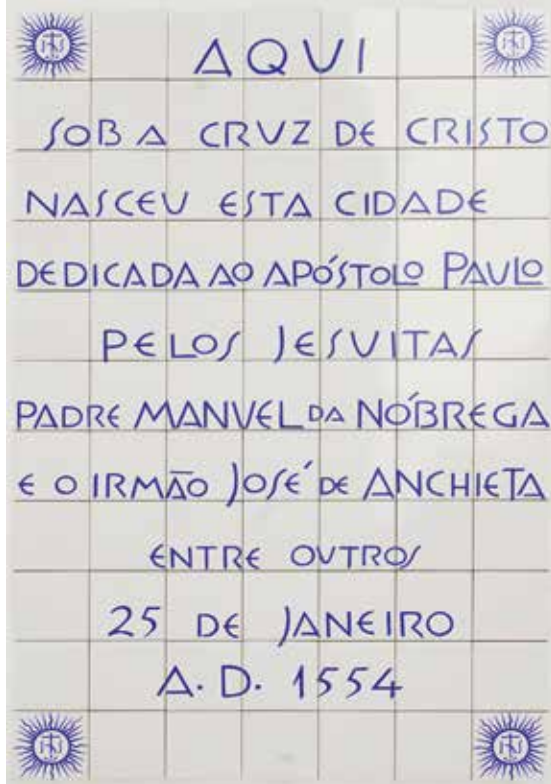 AQVI
SOB A CRVZ DE CRISTO
NASCEV ESTA CIDADE
DEDICADA AO APÓSTOLO PAVLO
PELOS JESVITAS
PADRE MANVEL DA NÓBREGA
E O IRMÃO JOSÉ DE ANCHIETA
ENTRE OVTROS
25 DE JANEIRO
A. D. 1554